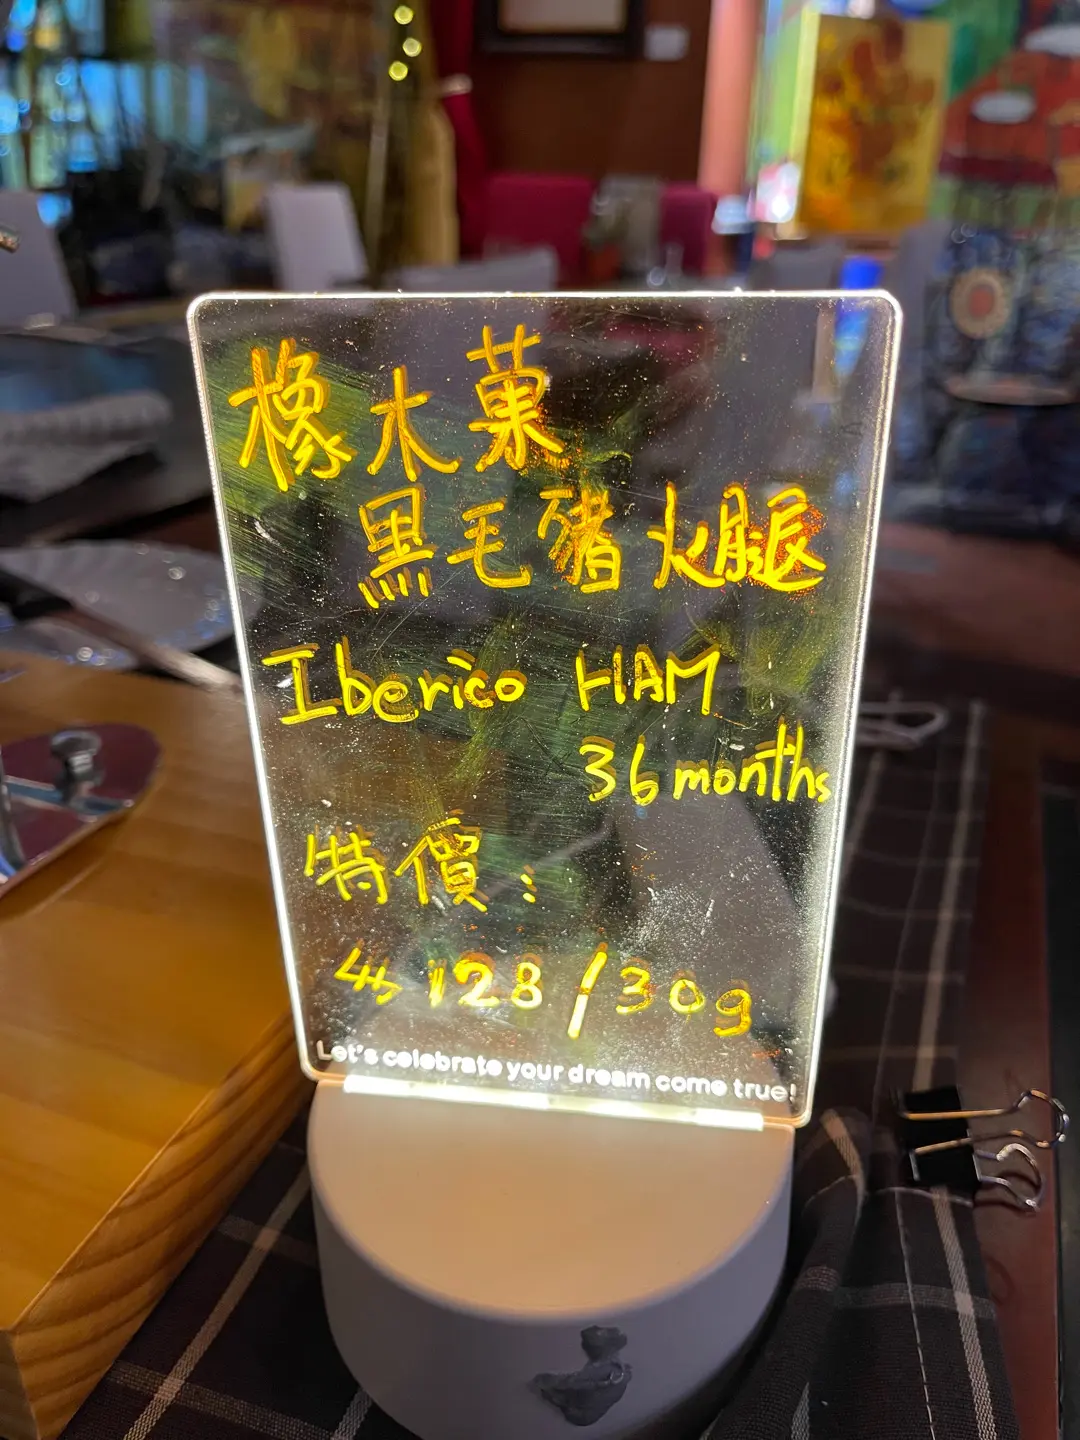 橡木菓
黑毛豬火腿
Iberico HAM
36 months
特價:
$128/30g
Let's celebrate your dream come true!